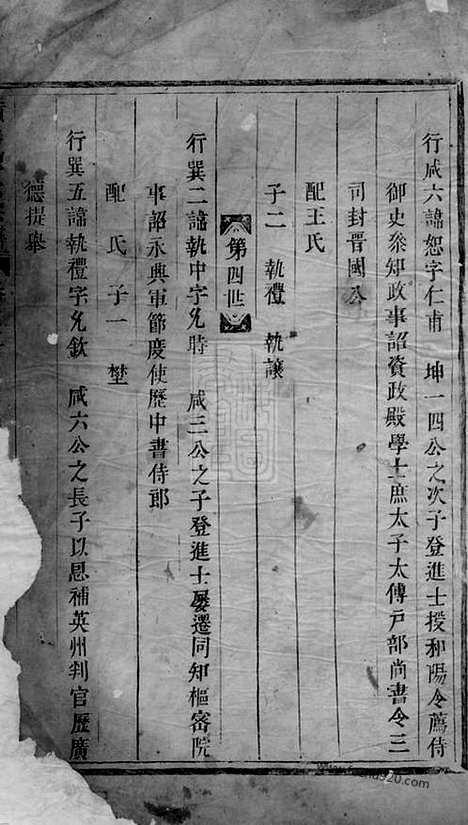 行咸六諱恕字仁甫 坤一四公之次子登進士授和陽令薦侍
御史叅知政事詔資政殿學士庶太子太傅戸部尚書令三
司封晋國公
配王氏
子二 執禮 執讓
第四世
行巽二諱執中字允時 咸三公之子登進士屢遷同知樞密院
事詔永興軍節度使歷中書侍郎
配 氏 子一 埜
行巽五諱執禮字允欽 咸六公之長子以恩補英州判官歷廣
德提舉